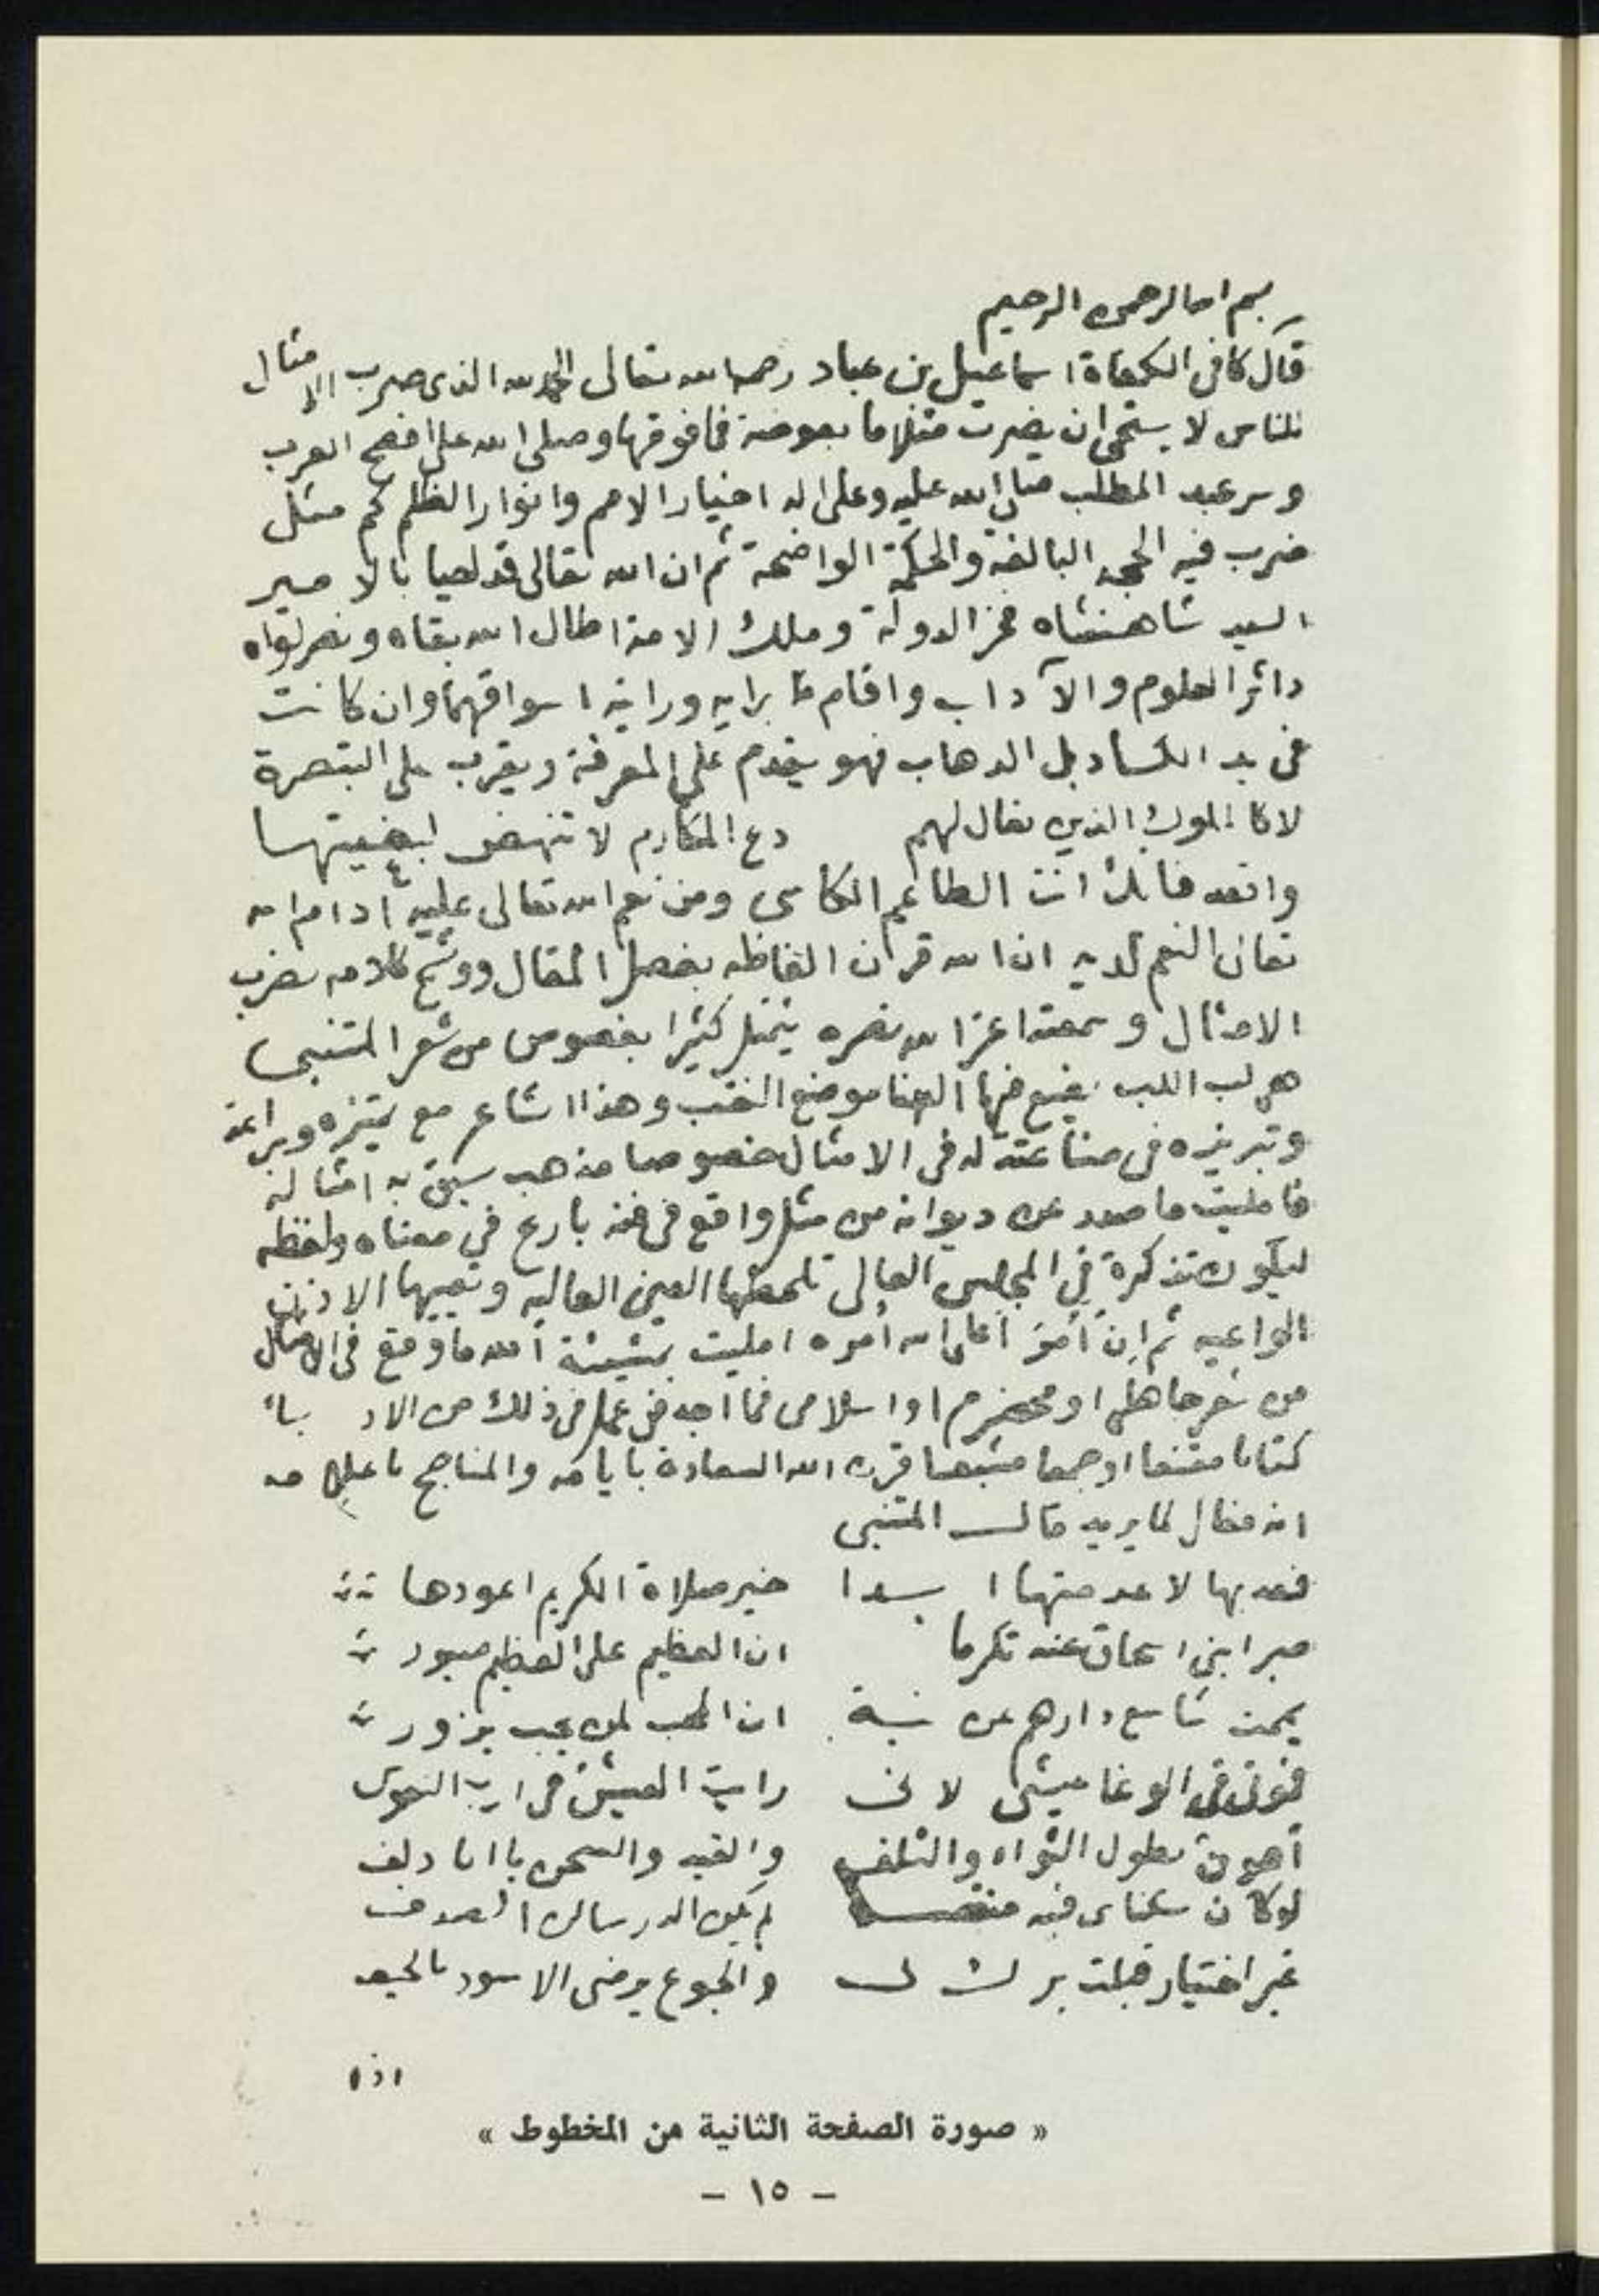 بسم الله الرحمن الرحيم
قال كافى الكفاة اسماعيل بن عباد رحمه الله تعالى الحمد لله الذى ضرب الامثال
للناس لا يستحى ان يضرب مثلا ما بعوضة فما فوقها وصلى الله على افصح العرب
وسر عبد المطلب صلى الله عليه وعلى اله اخيار الامم وانوار الظلم كم مثل
ضرب فيه الحجه البالغة والحكمة الواضحة ثم ان الله تعالى قد احيا بالامير
السيد شاهنشاه فخر الدولة وملك الامة اطال الله بقاه ونصر لواه
داثر العلوم والآداب واقام برايه ورايته اسواقهما وان كانت
فى يد الكساد بل الذهاب فهو يقدم على المعرفة ويقرب على التبصرة
لا كالملوك الذين يقال لهم دع المكارم لا تنهض لبغيتها
واقعد فانك انت الطاعم الكاسى ومن نعم الله تعالى عليه ادام الله
تعالى النعم لديه ان الله قرن الفاظه بفصل المقال ووشح كلامه بضرب
الامثال وسمعته اعز الله نصره يتمثل كثيرا بفصوص من شعر المتنبى
هى لب اللب يضع فيها الهنا موضع النقب وهذا الشاعر مع تميزه وبراعته
وتبريزه فى صناعته له فى الامثال خصوصا مذهب سبق به امثاله
فامليت ما صدر عن ديوانه من مثل واقع فى فنه بارع في معناه ولفظه
ليكون تذكرة في المجلس العالى تلحظها العين العاليه وتعيها الاذن
الواعيه ثم ان امر اعلى الله أمره امليت بمشيئة الله ما وقع فى الامثال
من شعر جاهلى او مخضرم او اسلامى فما اجد من عمل فى ذلك من الادباء
كتابا مقنعا او جمعا مشبعا قرن الله السعادة بايامه والمناجح باعلامه
انه فعال لما يريد قال المتنبى
فعد بها لا عدمتها ابدا خير صلاة الكريم اعودها
صبرا بنى اسحاق عنه تكرما ان العظيم على العظيم صبور
يممت شاسع دارهم عن نية ان المحب لمن يحب يزور
فموتى فى الوغا عيشى لانى رايت العيش فى ارب النفوس
أهون بطول الثواء والتلف والقيد والسجن يا ابا دلف
لو كان سكناى فيه منقصة لم يكن الدر ساكن الصدف
غير اختيار قبلت برك لى والجوع يرضى الاسود بالجيف
اذا
« صورة الصفحة الثانية من المخطوط »
- ١٥ -